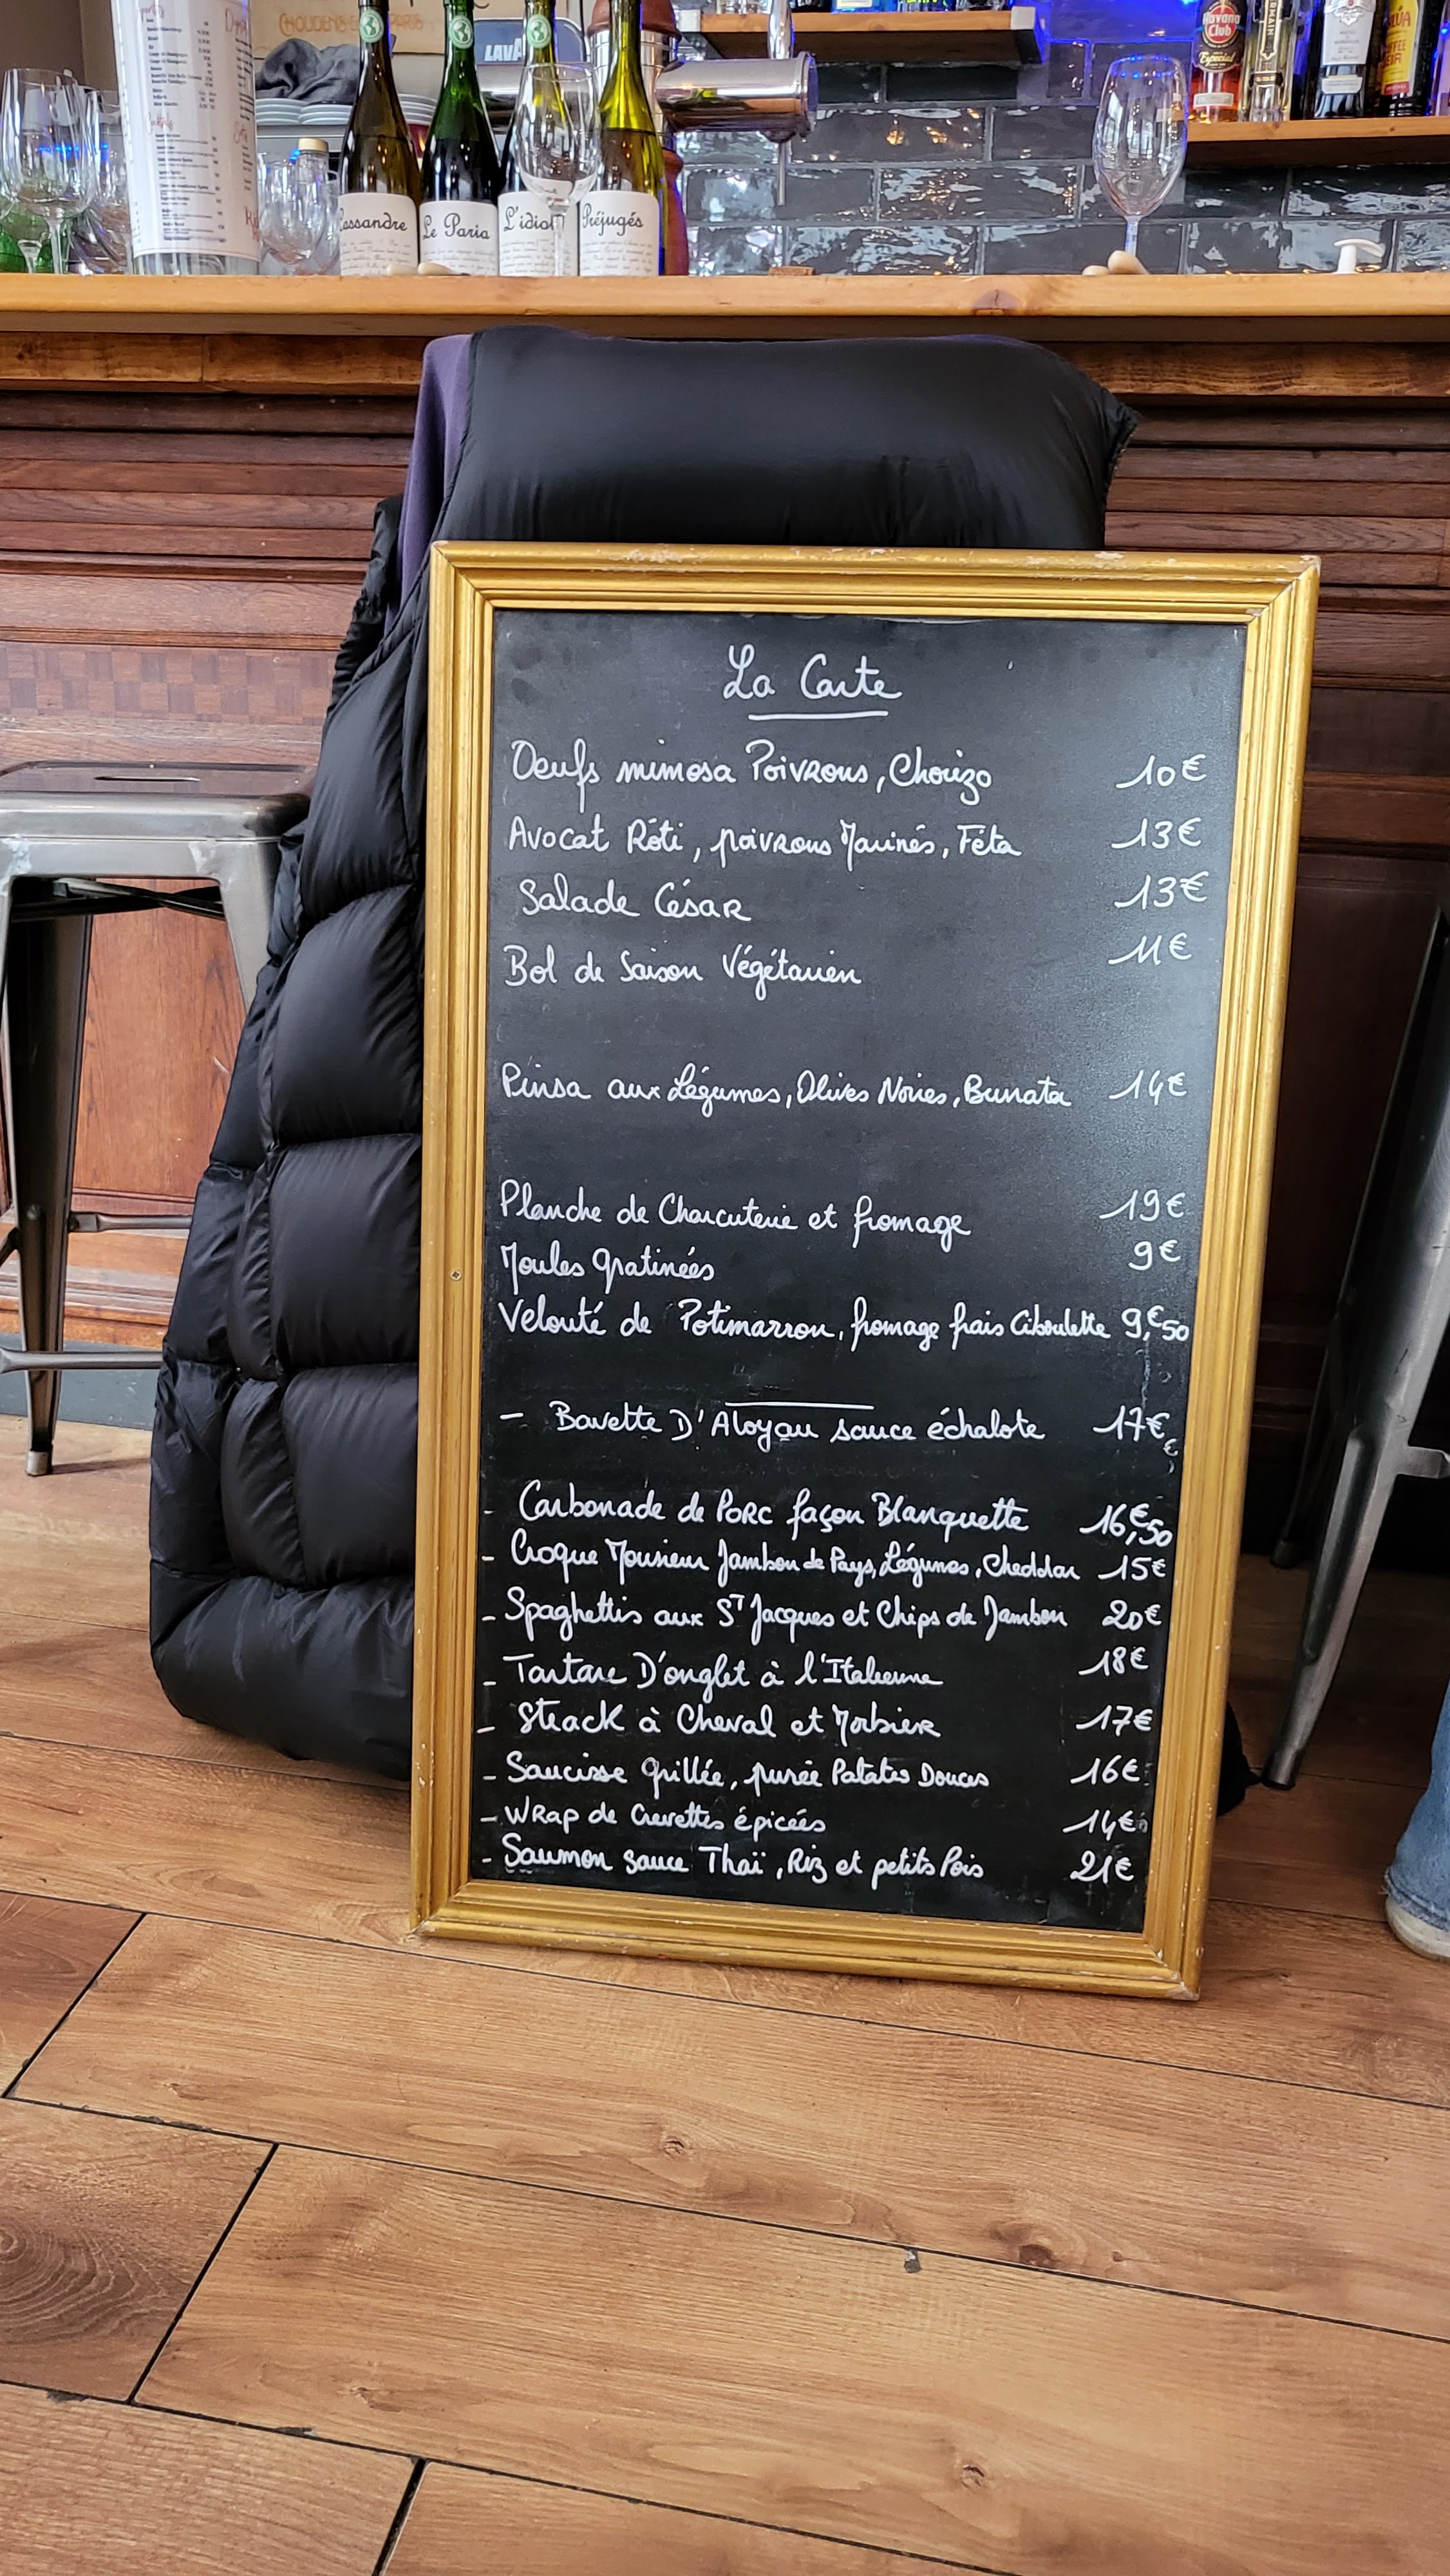 CHOUDENS
PARIS
LAVA
Havana
Club
Especial
Cassandre
Le Paria
L'idiot
Préjugés
La Carte
Oeufs mimosa Poivrons, Chorizo 10€
Avocat Rôti, poivrons Marinés, Féta 13€
Salade César 13€
Bol de Saison Végétarien 11€
Pinsa aux Légumes, Olives Noires, Burrata 14€
Planche de Charcuterie et fromage 19€
Moules gratinées 9€
Velouté de Potimarron, fromage frais Ciboulette 9,€50
- Bavette D'Aloyau sauce échalote 17€
- Carbonade de Porc façon Blanquette 16,€50
- Croque Monsieur Jambon de Pays, Légumes, Cheddar 15€
- Spaghettis aux ST Jacques et Chips de Jambon 20€
- Tartare D'onglet à l'Italienne 18€
- Steack à Cheval et Morbier 17€
- Saucisse grillée, purée Patates Douces 16€
- Wrap de Crevettes épicées 14€
- Saumon sauce Thaï, Riz et petits Pois 21€